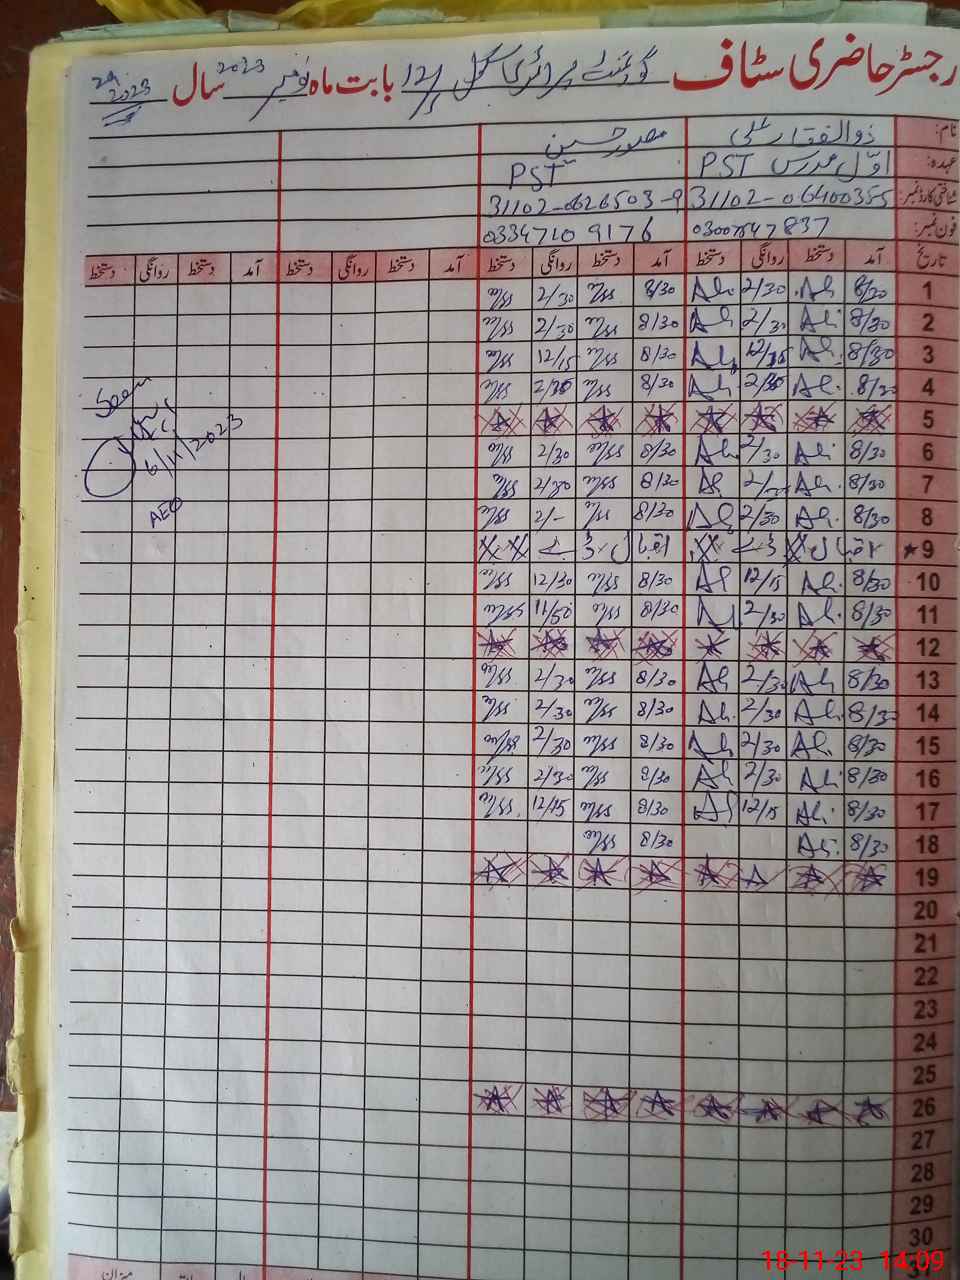 رجسٹر حاضری سٹاف گورنمنٹ پرائمری سکول 12/ بابت ماہ نومبر 2023 سال 2023
نام: ذوالفقار علی منصور حسین
عہدہ: اوّل مدرس PST PST
شناختی کارڈ نمبر: 31102-06400355 31102-0626503-9
فون نمبر: 03347109176
تاریخ آمد دستخط روانگی دستخط آمد دستخط روانگی دستخط آمد دستخط روانگی دستخط آمد دستخط روانگی دستخط
1 8/30 Ali 2/30 Ali 8/30 2/30
2 8/30 Ali 2/30 Ali 8/30 2/30
3 8/30 Ali 12/15 Ali 8/30 12/15
4 8/30 Ali 2/30 Ali 8/30 2/30
5
6 8/30 Ali 2/30 Ali 8/30 2/30
7 8/30 Ali 2/30 Ali 8/30 2/30
8 8/30 Ali 2/30 Ali 8/30 2/-
9 اقبال ڈے اقبال ڈے
10 8/30 Ali 12/15 Ali 8/30 12/30
11 8/30 Ali 2/30 Ali 8/30 11/50
12
13 8/30 Ali 2/30 Ali 8/30 2/30
14 8/30 Ali 2/30 Ali 8/30 2/30
15 8/30 Ali 2/30 Ali 8/30 2/30
16 8/30 Ali 2/30 Ali 8/30 2/30
17 8/30 Ali 12/15 Ali 8/30 12/15
18 8/30 Ali 8/30
19
20
21
22
23
24
25
26
27
28
29
30
31
Seen
6/11/2023
AEO
میزان
18-11-23 14:09